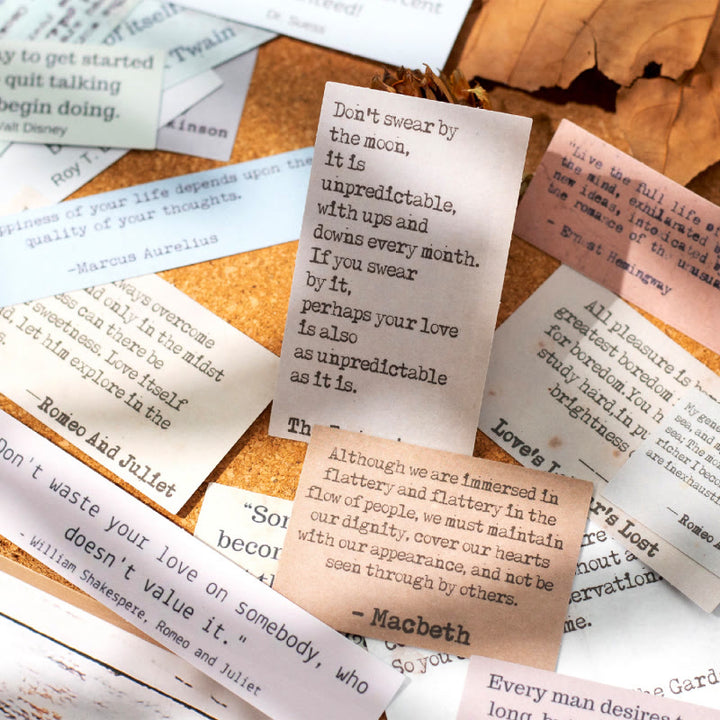 cent
nteed!
Dr. Suess
itself
Twain
ay to get started
quit talking
begin doing.
Walt Disney
kinson
Roy T.
ppiness of your life depends upon the
quality of your thoughts.
~Marcus Aurelius
Don't swear by
the moon,
it is
unpredictable,
with ups and
downs every month.
If you swear
by it,
perhaps your love
is also
as unpredictable
as it is.
"Live the full life
the mind, exhilarated by
new ideas, intoxicated
the romance of the unusual
- Ernest Hemingway
ways overcome
nd only in the midst
ess can there be
sweetness. Love itself
d, let him explore in the
s.
—Romeo And Juliet
All pleasure is
greatest boredom
for boredom. You
study hard, in
brightness
Love's
r's Lost
My gene
sea, and
sea; The mo
richer I becom
are inexhaust
— Romeo
Don't waste your love on somebody, who
doesn't value it."
- William Shakespere, Romeo and Juliet
"Som
becom
Although we are immersed in
flattery and flattery in the
flow of people, we must maintain
our dignity, cover our hearts
with our appearance, and not be
seen through by others.
- Macbeth
re
hout a
ervation.
me.
So you
e Gard
Every man desires
long,